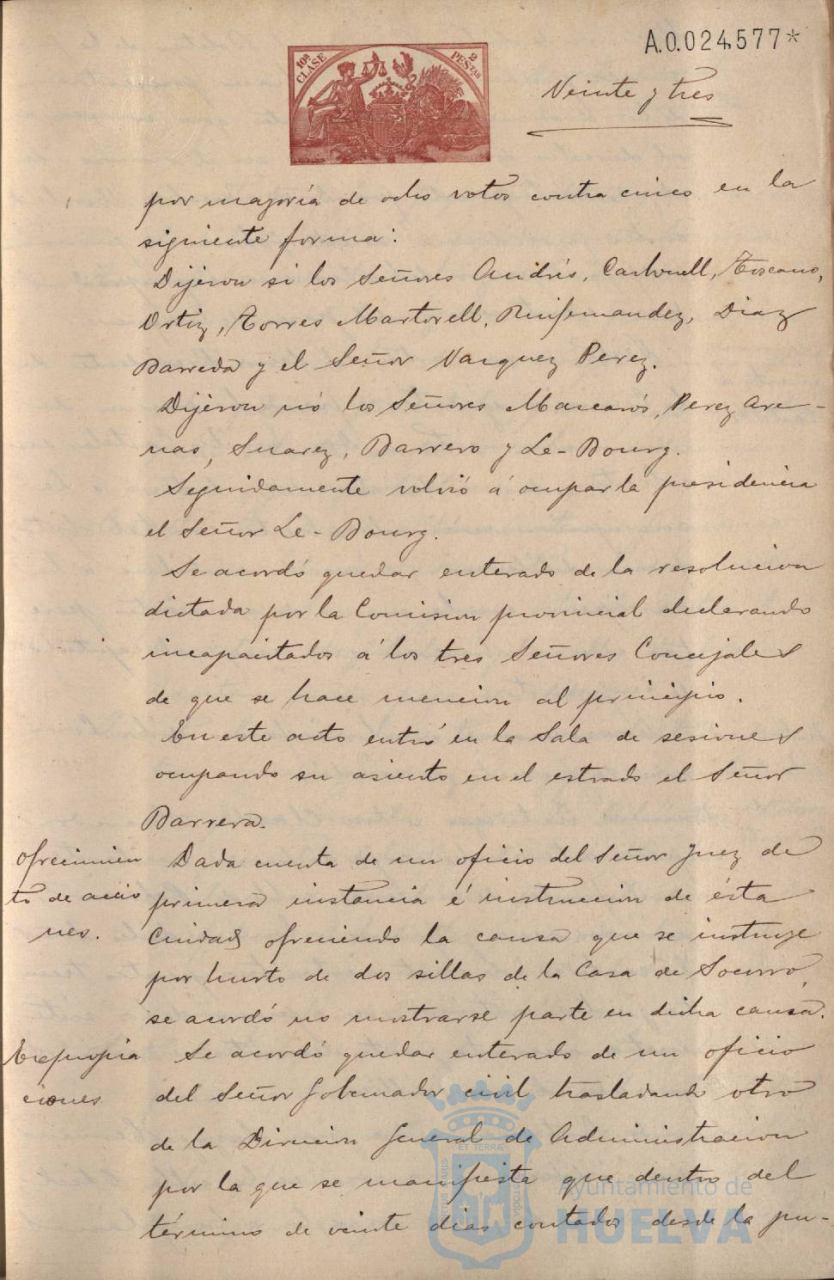 A.0.024,577*
10ª CLASE
2 PESETAS
Veinte y tres
por mayoría de ocho votos contra cinco en la
siguiente forma:
Dijéron si los Señores Andrés, Carbonell, Toscano,
Ortiz, Torres Martorell, Ruifernandez, Diaz
Barreda y el Señor Vazquez Perez.
Dijéron nó los Señores Mascarós, Perez Are-
nas, Suarez, Barrero y Le-Bourg.
Seguidamente volvió á ocupar la presidencia
el Señor Le-Bourg.
Se acordó quedar enterado de la resolucion
dictada por la Comision provincial declarando
incapacitados á los tres Señores Concejales
de que se hace mencion al principio.
En este acto entró en la Sala de sesiones
ocupando su asiento en el estrado el Señor
Barrera.
Ofrecimien
to de accio
nes.
Dada cuenta de un oficio del Señor Juez de
primera instancia é instruccion de ésta
Ciudad ofreciendo la causa que se instruye
por hurto de dos sillas de la Casa de Socorro,
se acordó no mostrarse parte en dicha causa.
Expropia
ciones
Se acordó quedar enterado de un oficio
del Señor Gobernador civil trasladando otro
de la Direccion General de Administracion
por la que se manifiesta que dentro del
término de veinte dias contados desde la pu-
Ayuntamiento de
HUELVA